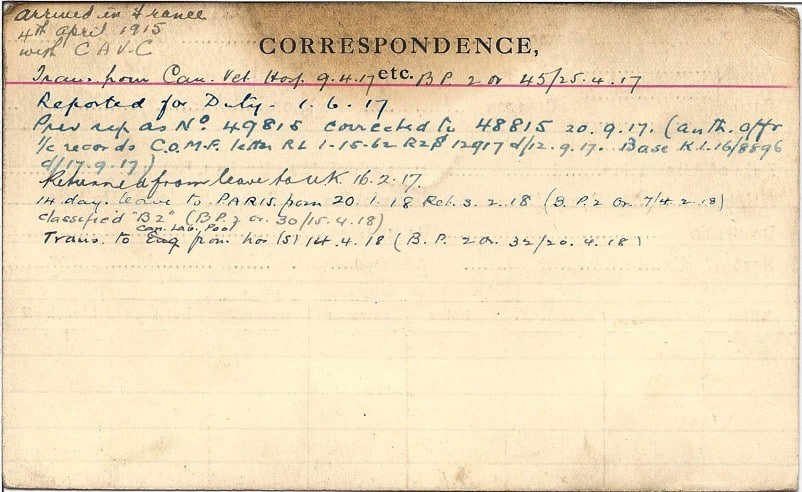 arrived in France
4th april 1915
with C A V C
CORRESPONDENCE,
etc.
Trans. from Can. Vet Hosp 9.4.17 B.P. 2 or 45/25.4.17
Reported for Duty - 1.6.17
Prev rep as No 49815 corrected to 48815 20.9.17. (auth. offr
i/c records C.O.M.F. letter RL 1-15-62 R2B 12917 d/12.9.17. Base K1.16/8896
d/17.9.17)
Returned from leave to UK 16.2.17.
14 days leave to PARIS from 20.1.18 Ret. 3.2.18 (B.P.2 or. 7/4.2.18)
classified "B2" (B.P.2 or. 30/15.4.18)
Can. Lab. Pool
Trans. to Eng from hos (S) 14.4.18 (B.P. 2 or. 32/20.4.18)